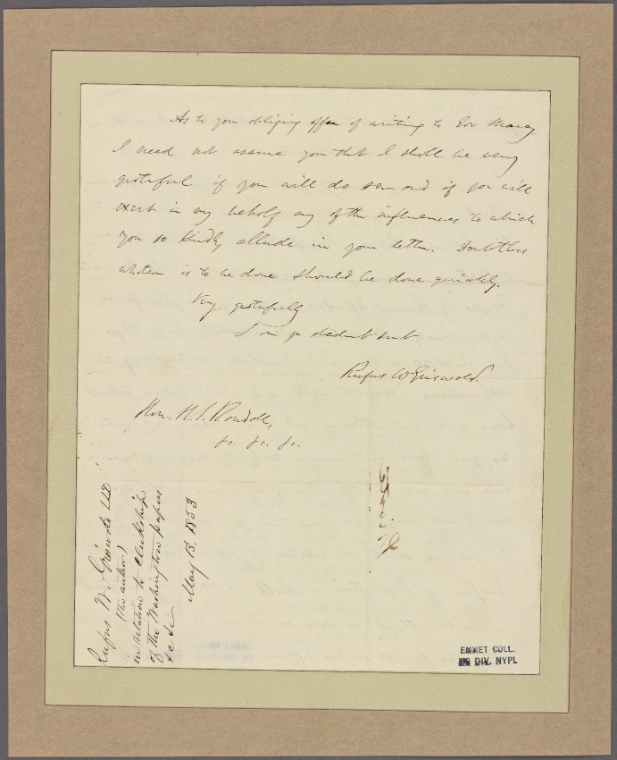 As to your obliging offer of writing to Gov Marcy
I need not assure you that I shall be very
grateful if you will do so and if you will
exert in my behalf any of the influences to which
you so kindly allude in your letter. Doubtless
whatever is to be done should be done quickly.
Very gratefully
I am yr obedient servt
Rufus W Griswold.
Hon. H. S. Randall,
&c. &c. &c.
Rufus W. Griswold LLD
(the author)
in relation to clerkship
of the Washington papers
&c &c
May 13. 1853
EMMET COLL.
MS. DIV. NYPL